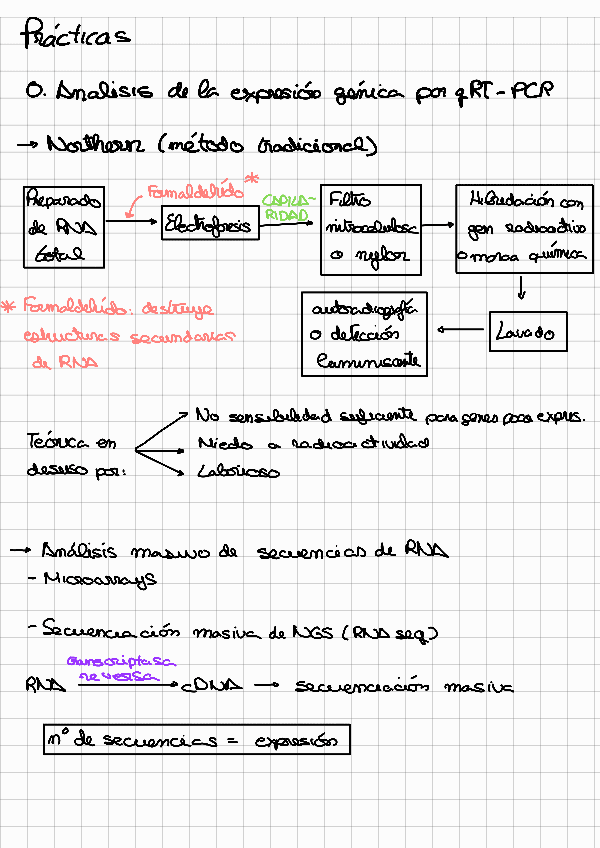 Prácticas
0. Analisis de la expresión génica por qRT-PCR
→ Northern (método tradicional)
Preparado
de RNA
total
Formaldehído *
Electroforesis
CAPILA-
RIDAD
Filtro
nitrocelulosa
o nylon
Hibridación con
gen radioactivo
o marca química
Lavado
autoradiografía
o detección
luminiscente
* Formaldehído: destruye
estructuras secundarias
de RNA
Teórica en
desuso por:
No sensibilidad suficiente para genes poco expres.
Miedo a radioactividad
Laborioso
→ Análisis masivo de secuencias de RNA
- Microarrays
- Secuenciación masiva de NGS (RNA seq)
RNA
transcriptasa
reversa
→ cDNA → secuenciación masiva
nº de secuencias = expresión